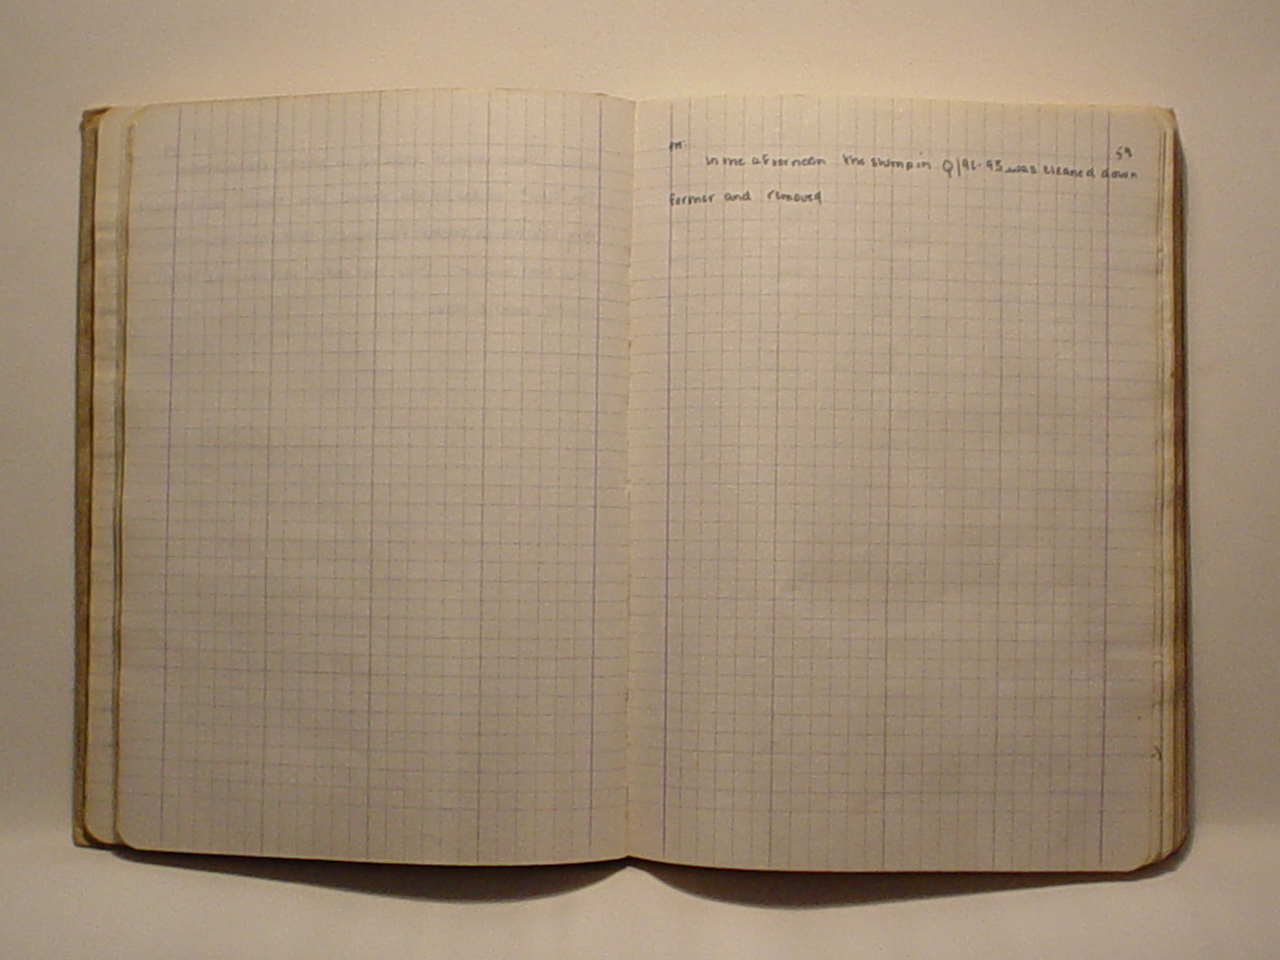 59
In the afternoon the stump in Q/96-95 was cleaned down
former and removed